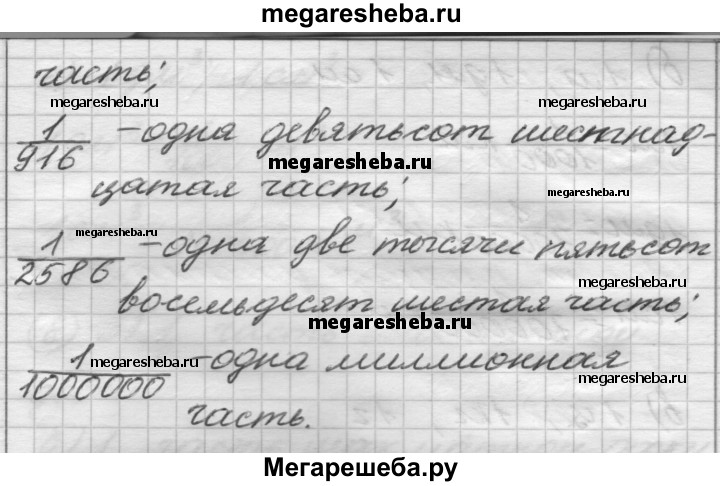 megaresheba.ru
часть;
megaresheba.ru megaresheba.ru
1/916 - одна девятьсот шестнад-
megaresheba.ru
цатая часть;
megaresheba.ru
megaresheba.ru
1/2586 - одна две тысячи пятьсот
megaresheba.ru
восемьдесят шестая часть;
megaresheba.ru
1/1000000 - одна миллионная
megaresheba.ru megaresheba.ru
часть.
Мегарешеба.ру